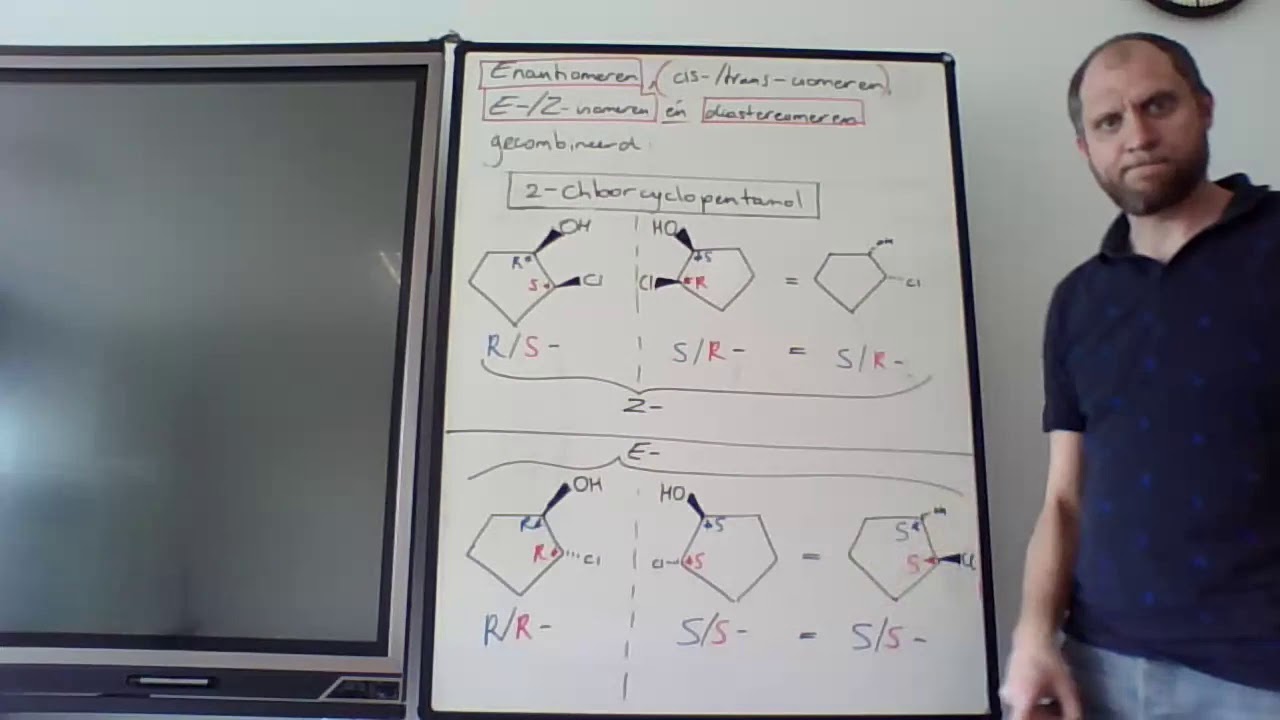 Enantiomeren, (cis-/trans-isomeren)
E-/Z-isomeren én diastereomeren
gecombineerd:
2-chloorcyclopentanol
OH HO OH
R* *S
S* Cl Cl *R = Cl
R/S - S/R - = S/R -
Z-
E-
OH HO OH
R* *S S*
R* Cl Cl *S = S* Cl
R/R - S/S - = S/S -